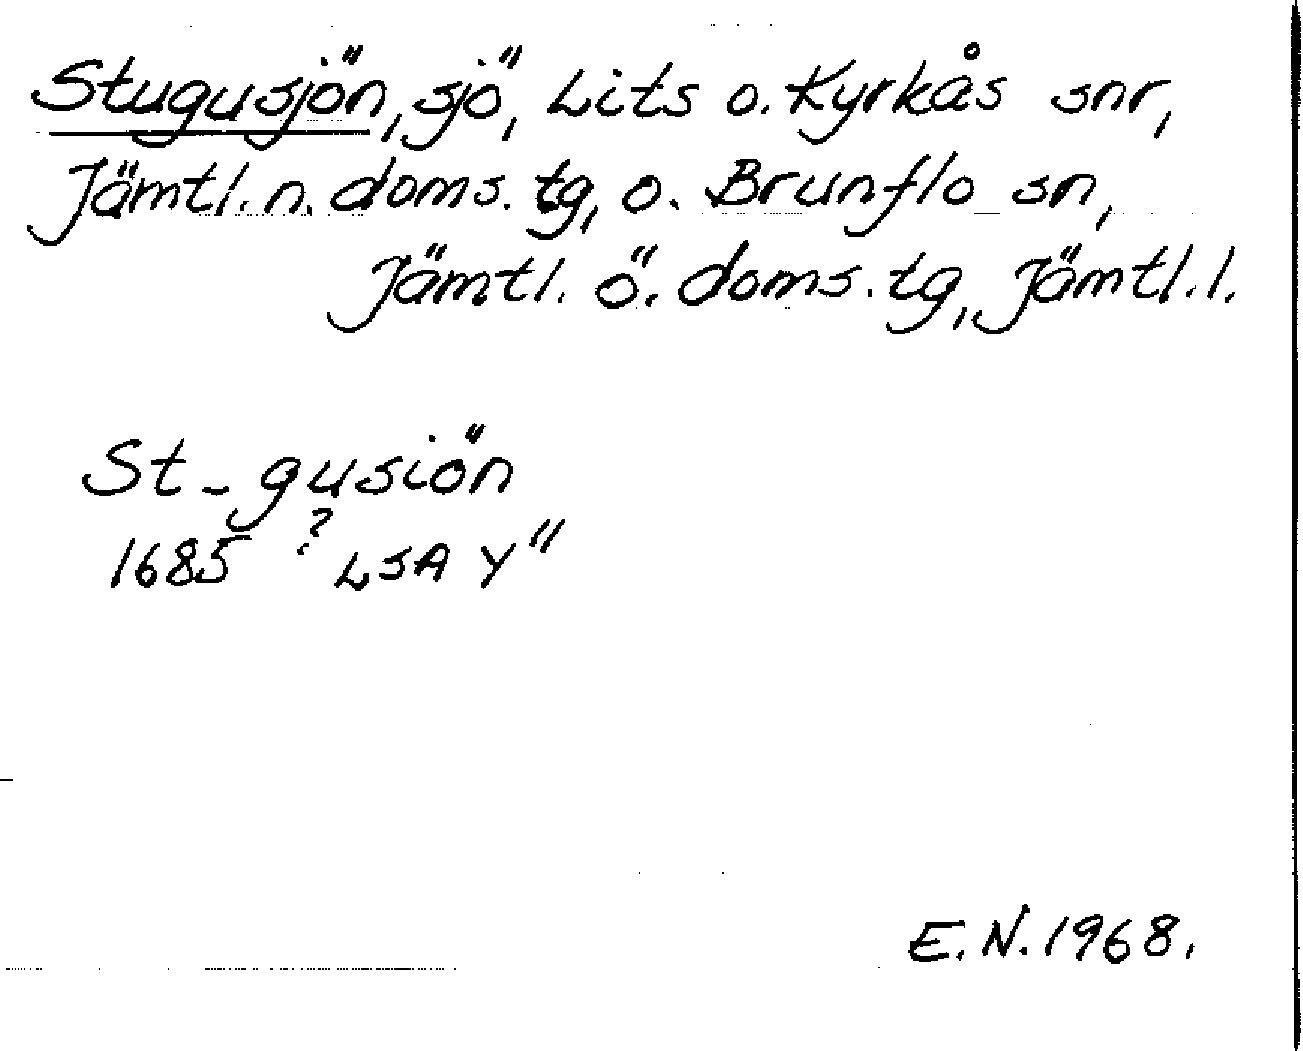 Stugusjön, sjö, Lits o. Kyrkås snr,
Jämtl. n. doms. tg, o. Brunflo sn,
Jämtl. ö. doms. tg, Jämtl. l.
St - gusiön
?
1685 LSA Y"
E. N. 1968.